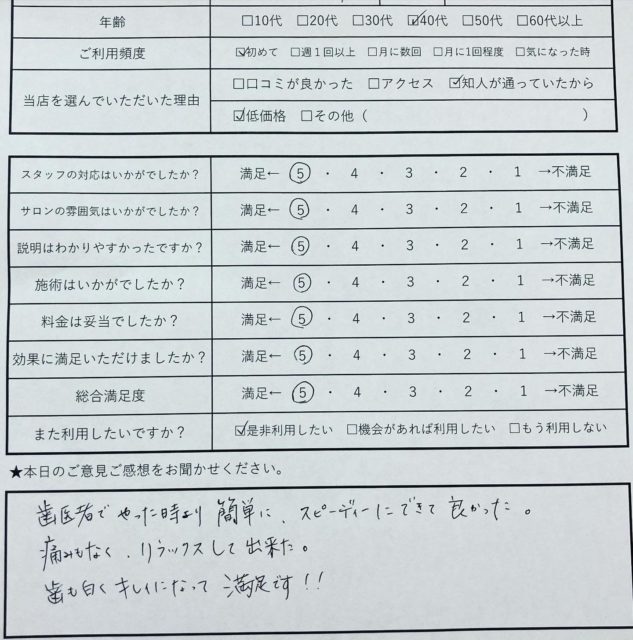 年齢 □10代 □20代 □30代 ☑40代 □50代 □60代以上
ご利用頻度 ☑初めて □週1回以上 □月に数回 □月に1回程度 □気になった時
当店を選んでいただいた理由 □口コミが良かった □アクセス ☑知人が通っていたから
☑低価格 □その他( )
スタッフの対応はいかがでしたか? 満足← ⑤ ・ 4 ・ 3 ・ 2 ・ 1 →不満足
サロンの雰囲気はいかがでしたか? 満足← ⑤ ・ 4 ・ 3 ・ 2 ・ 1 →不満足
説明はわかりやすかったですか? 満足← ⑤ ・ 4 ・ 3 ・ 2 ・ 1 →不満足
施術はいかがでしたか? 満足← ⑤ ・ 4 ・ 3 ・ 2 ・ 1 →不満足
料金は妥当でしたか? 満足← ⑤ ・ 4 ・ 3 ・ 2 ・ 1 →不満足
効果に満足いただけましたか? 満足← ⑤ ・ 4 ・ 3 ・ 2 ・ 1 →不満足
総合満足度 満足← ⑤ ・ 4 ・ 3 ・ 2 ・ 1 →不満足
また利用したいですか? ☑是非利用したい □機会があれば利用したい □もう利用しない
★本日のご意見ご感想をお聞かせください。
歯医者でやった時より簡単に、スピーディーにできて良かった。
痛みもなく、リラックスして出来た。
歯も白くキレイになって満足です!!